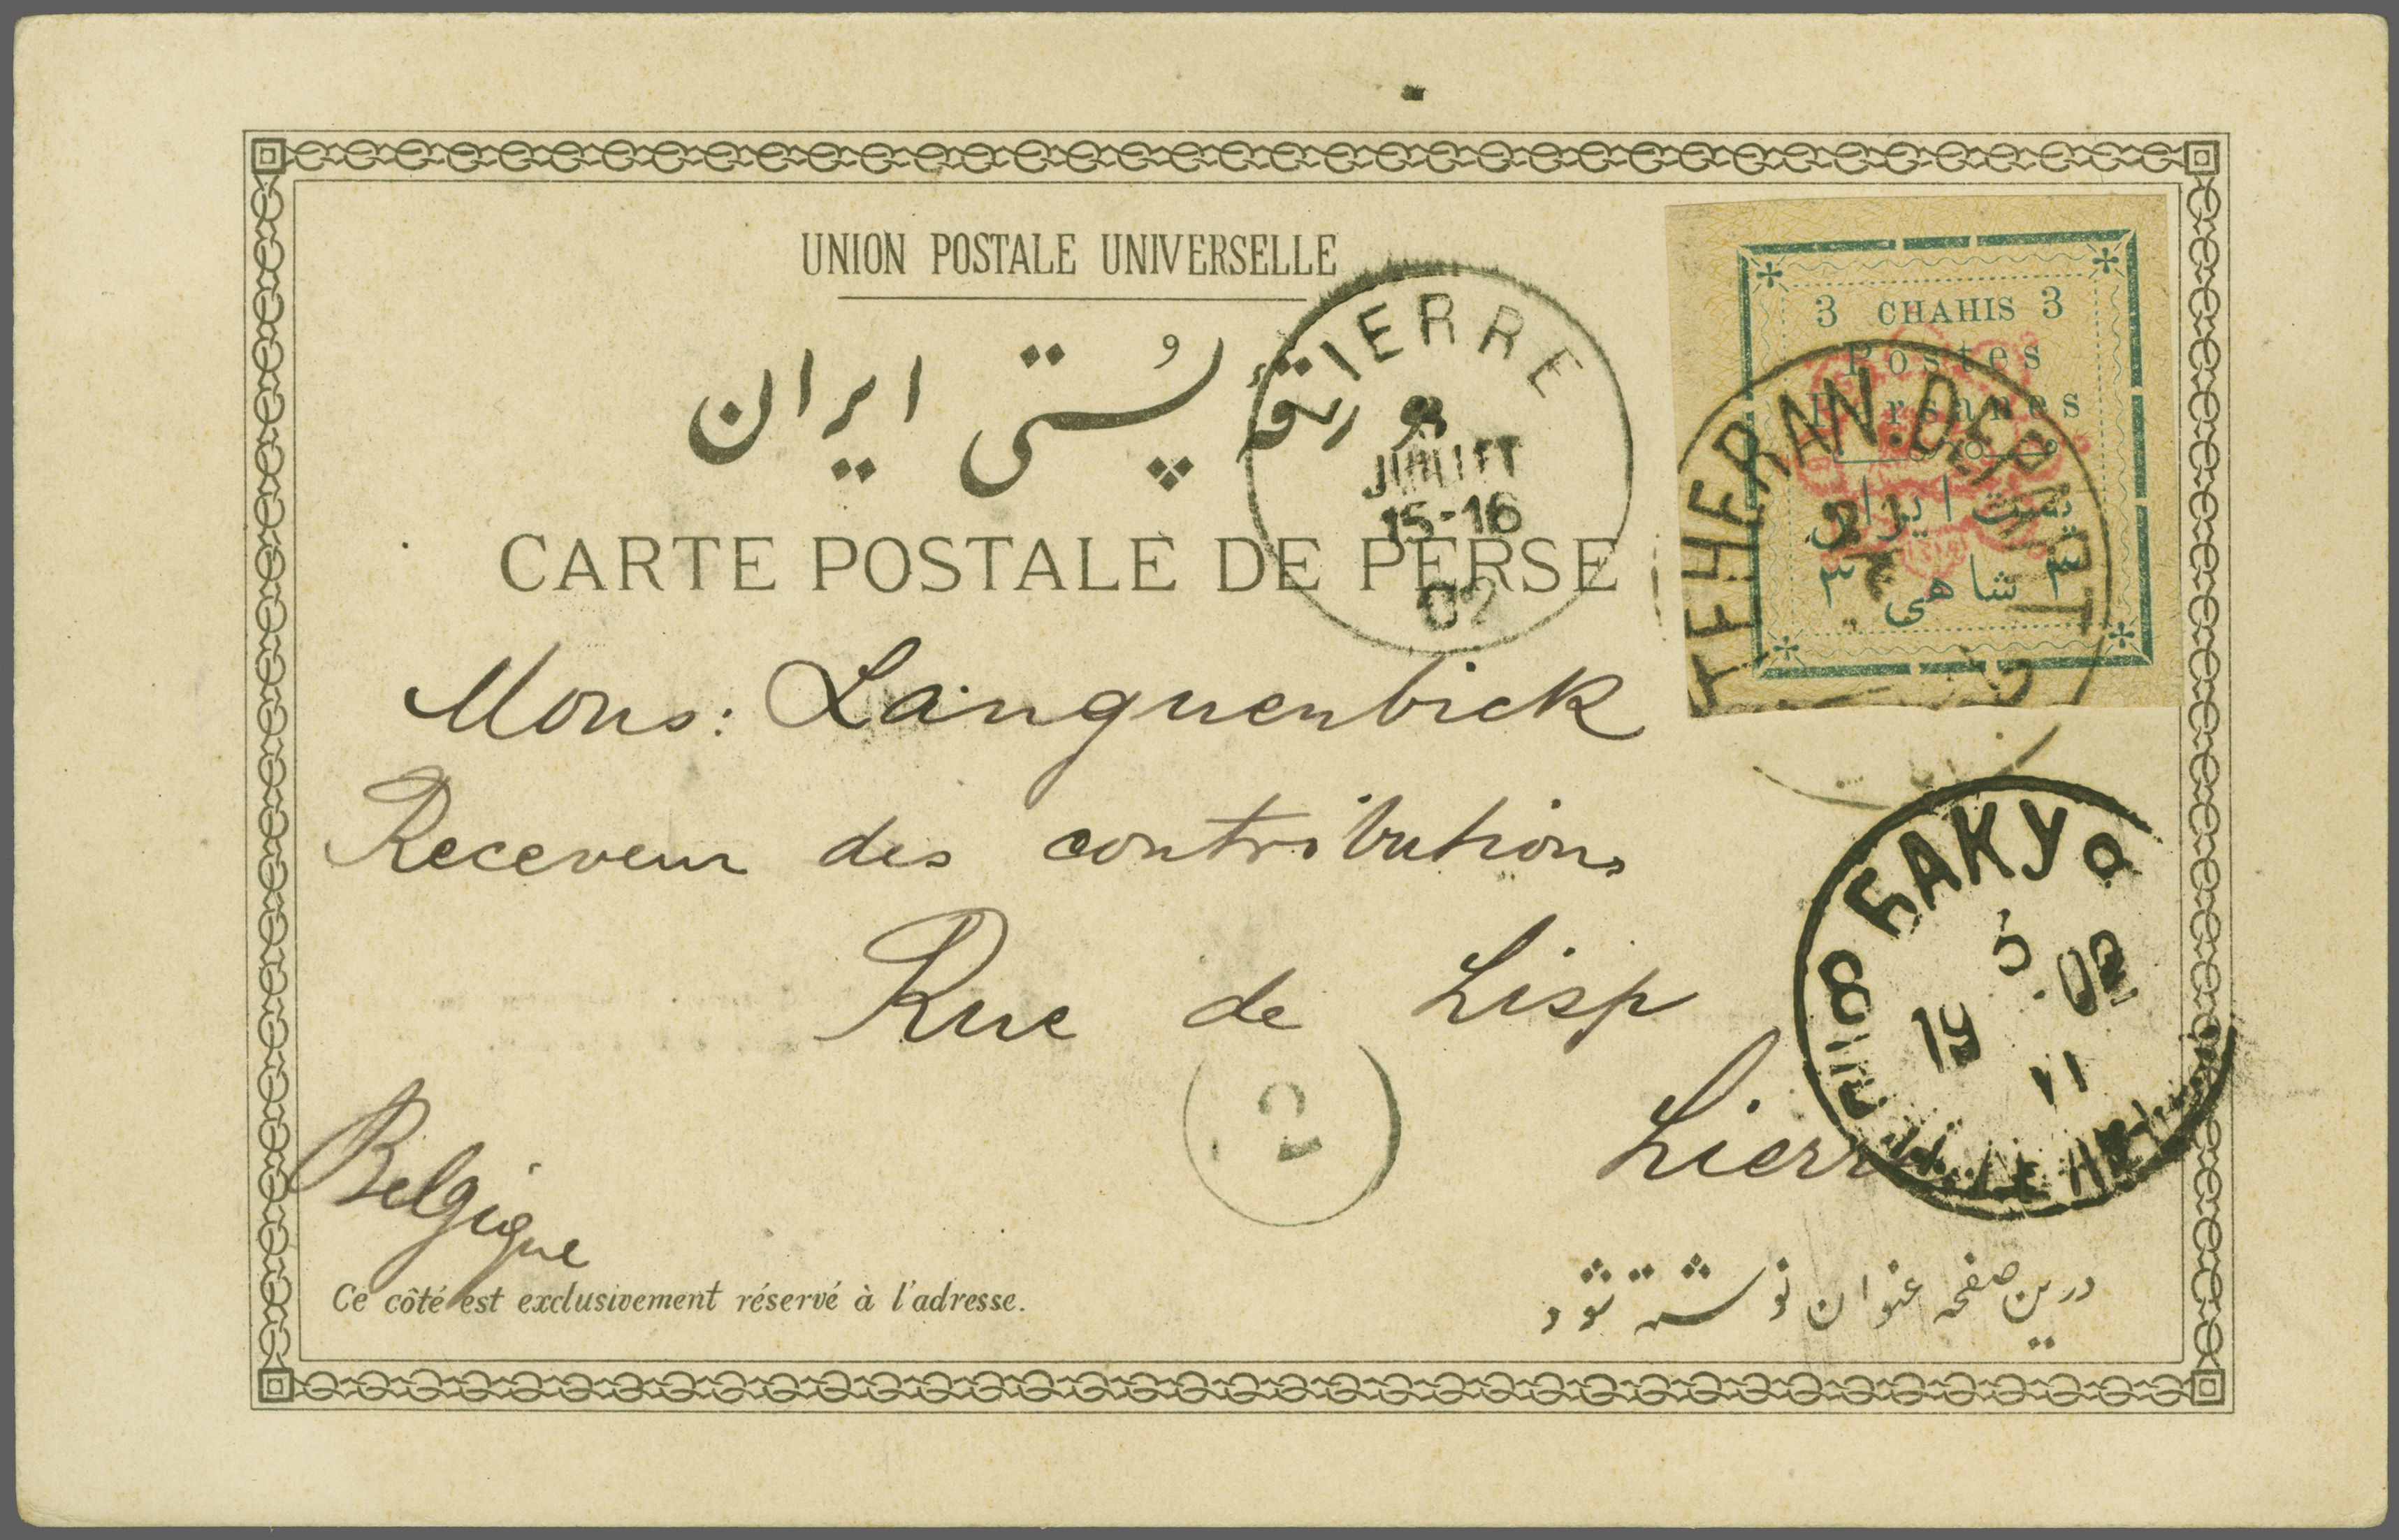 UNION POSTALE UNIVERSELLE
ورقهٔ پُستی ایران
CARTE POSTALE DE PERSE
LIERRE
JUILLET
15-16
02
3 CHAHIS 3
Postes
Persanes
پست ایران
۳ شاهی ۳
TEHERAN.DEPART
Mons: Languenbick
Receveur des contributions
Rue de Lisp
Lierre
Belgique
БАКУ
5
19 02
11
2
Ce côté est exclusivement réservé à l'adresse.
درین صفحه عنوان نوشته شود